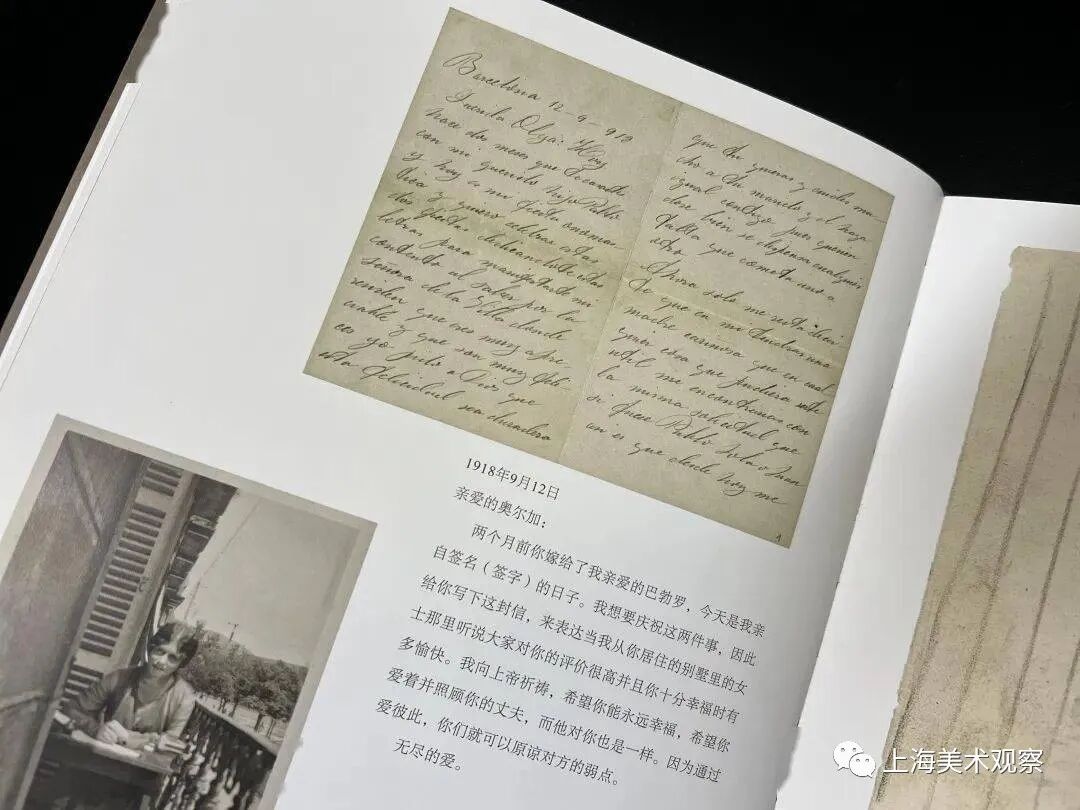 Barcelona 12-9-918
Querida Olga: Hoy
hace dos meses que te casaste
con mi querido hijo Pablo
y hoy es mi fiesta onomas
tica y quiero celebrar estas
dos fiestas dedicandote estas
letras para manifestarte mi
contento al saber por la
señora de la Villa donde
residen que eres muy apre
ciable y que son muy feli
ces yo pido a Dios que
esta felicidad sea duradera
que tu quieras y cuides mu
cho a tu marido y el haga
igual contigo pues querien
dose bien se dispensa cualquier
falta que cometa uno a
otro
Ahora solo me resta decir
te que en mi tendras una
madre cariñosa que en cual
quier cosa que pudiera serte
util me encontraras con
la misma solicitud que
si fuese Pablo Lola o Juan
asi es que desde hoy me
1
1918年9月12日
亲爱的奥尔加：
两个月前你嫁给了我亲爱的巴勃罗，今天是我亲
自签名（签字）的日子。我想要庆祝这两件事，因此
给你写下这封信，来表达当我从你居住的别墅里的女
士那里听说大家对你的评价很高并且你十分幸福时有
多愉快。我向上帝祈祷，希望你能永远幸福，希望你
爱着并照顾你的丈夫，而他对你也是一样。因为通过
爱彼此，你们就可以原谅对方的弱点。
无尽的爱。
上海美术观察